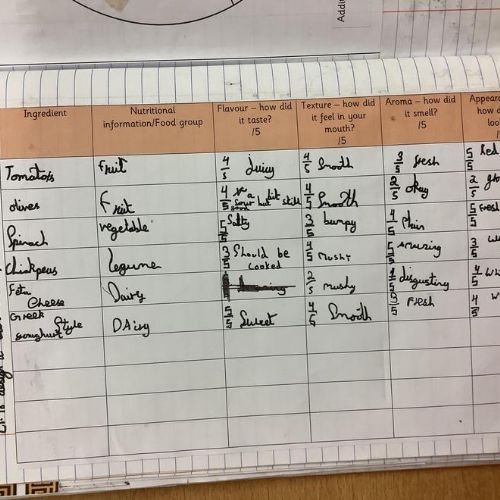 Addi
Ingredient
Nutritional
information/Food group
Flavour – how did
it taste?
/5
Texture – how did
it feel in your
mouth?
/5
Aroma – how did
it smell?
/5
Appeara
how d
loo
Tomatoes Fruit 4/5 Juicy 4/5 Smooth 3/5 fresh 5/5 Red
olives Fruit 4/5 a bit
sour but still
good 4/5 Smooth 2/5 okay 2/5
Spinach vegetable 5/5 Salty 3/5 bumpy 4/5 Plain 5/5 Fresh
Chickpeas Legume 3/5 Should be
cooked 4/5 Mushy 5/5 Amazing 3/5
Feta
Cheese Dairy 2/5 mushy 4/5 disgusting 4/5 Whi
Greek
Style
yoghurt DAiry 5/5 Sweet 4/5 Smooth 3/5 Fresh 4/5 W